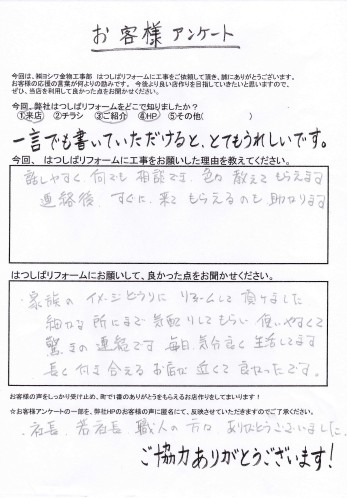 お客様アンケート
今回は、㈱ヨシワ金物工事部 はつしばリフォームに工事をご依頼して頂き、誠にありがとうございます。
お客様の応援の言葉が何よりの励みです。今後より良い店作りを目指していきたいと思いますので、
ぜひ、当店を利用して良かった点をお聞かせください。
今回、弊社はつしばリフォームをどこで知りましたか?
①来店 ②チラシ ③ご紹介 ④HP ⑤その他( )
一言でも書いていただけると、とてもうれしいです。
今回、 はつしばリフォームに工事をお願いした理由を教えてください。
話しやすく 何でも 相談でき 色々 教えて もらえます
連絡後 すぐに 来て もらえるのも 助かります
はつしばリフォームにお願いして、良かった点をお聞かせください。
・家族の イメージどうりに リフォームして 頂けました
細かな所にまで 気配りしてもらい 使いやすくて
驚きの連続です 毎日 気分良く 生活してます
長く 付き合える お店が 近くて 良かったです。
お客様の声をしっかり受け止め、町で1番のありがとうをもらえるお店作りをしてまいります!
☆お客様アンケートの一部を、弊社HPのお客様の声に匿名にて、反映させていただきますのでご了承ください。
・社長、若社長 職人の方々 ありがとうございました。
ご協力ありがとうございます!